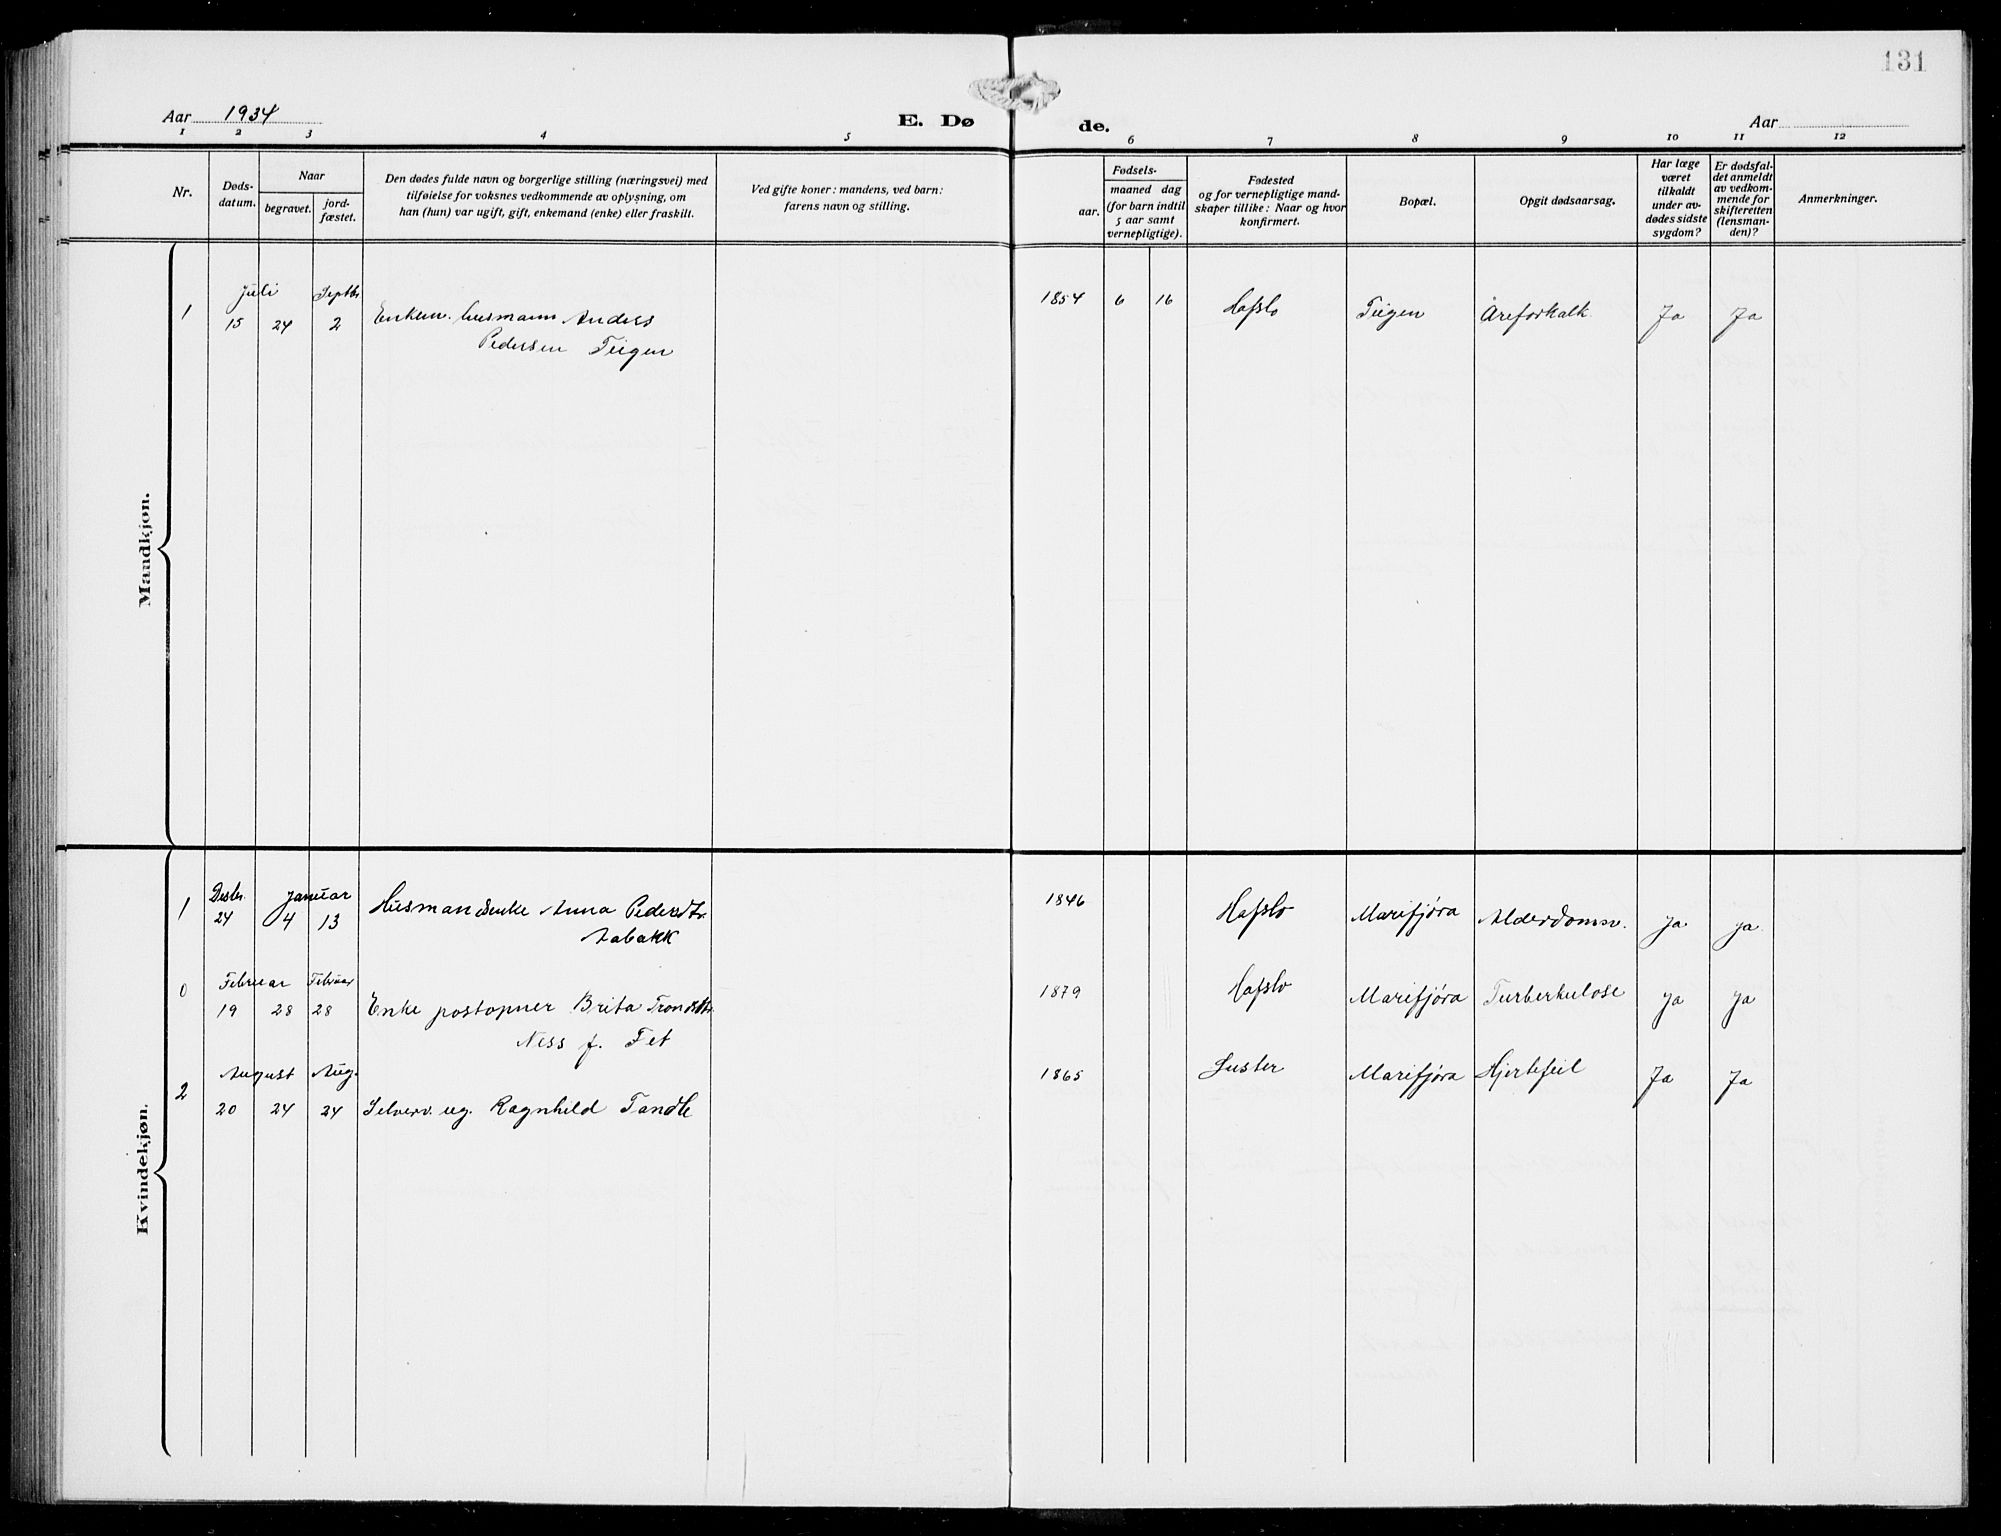 131
Aar 1934
E. Dø de.
Aar
1 2 3 4 5 6 7 8 9 10 11 12
Nr.
Døds-
datum.
Naar
begravet.
jord-
fæstet.
Den dødes fulde navn og borgerlige stilling (næringsvei) med
tilføielse for voksnes vedkommende av oplysning, om
han (hun) var ugift, gift, enkemand (enke) eller fraskilt.
Ved gifte koner: mandens, ved barn:
farens navn og stilling.
Fødsels-
aar.
maaned dag
(for barn indtil
5 aar samt
vernepligtige).
Fødested
og for vernepligtige mand-
skaper tillike: Naar og hvor
konfirmert.
Bopæl.
Opgit dødsaarsag.
Har læge
været
tilkaldt
under av-
dødes sidste
sygdom?
Er dødsfal-
det anmeldt
av vedkom-
mende for
skifteretten
(lensman-
den)?
Anmerkninger.
Mandkjøn.
Juli Septbr
1 15 24 2 Enkem. husmann Anders 1854 6 16 Hafslo Teigen Åreforkalk. Ja Ja
Pedersen Teigen
Kvindekjøn.
Desbr. Januar
1 24 4 13 Husmandsenke Anna Pedersdtr. 1846 Hafslo Marifjøra Alderdomsv. Ja Ja
Februar Februar
0 19 28 28 Enke postopner Brita Trondsdtr. 1879 Hafslo Marifjøra Turberkulose Ja Ja
Ness f. Fet
August Aug.
2 20 24 24 Selverv. ug. Ragnhild Tandle 1865 Luster Marifjøra Hjertefeil Ja Ja